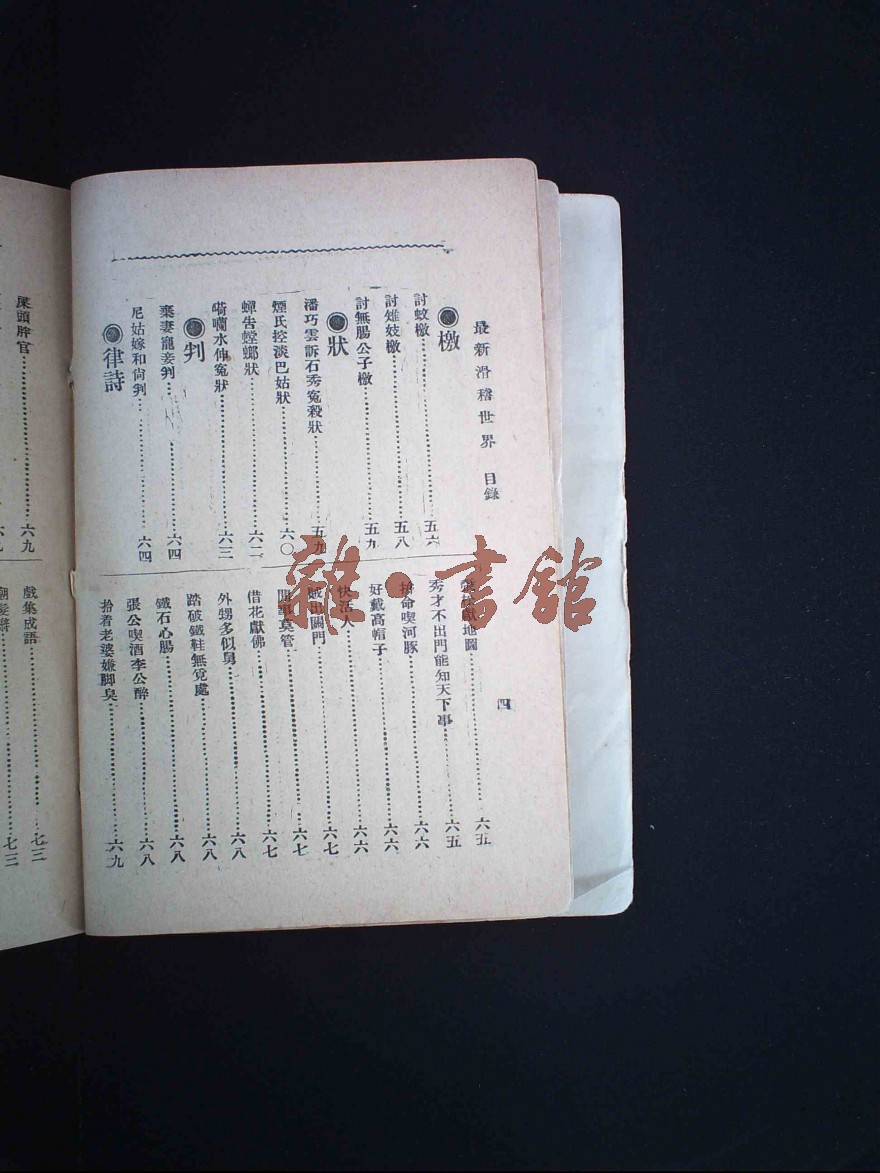 最新滑稽世界 目錄
四
◉檄
討蚊檄……五六
討雉妓檄……五八
討無腸公子檄……五九
◉狀
潘巧雲訴石秀寃殺狀……五九
煙氏控淡巴姑狀……六〇
蟬告螳螂狀……六二
嗬囒水伸寃狀……六三
◉判
棄妻寵妾判……六四
尼姑嫁和尙判……六四
◉律詩
地圖……六五
秀才不出門能知天下事……六五
拚命喫河豚……六六
好戴高帽子……六六
快活人……六六
賊出關門……六七
閒事莫管……六七
借花獻佛……六七
外甥多似舅……六八
踏破鐵鞋無覓處……六八
鐵石心腸……六八
張公喫酒李公醉……六八
拾着老婆嫌脚臭……六九
屎頭胖官……六九
戲集成語……七三
七三
雜·書館